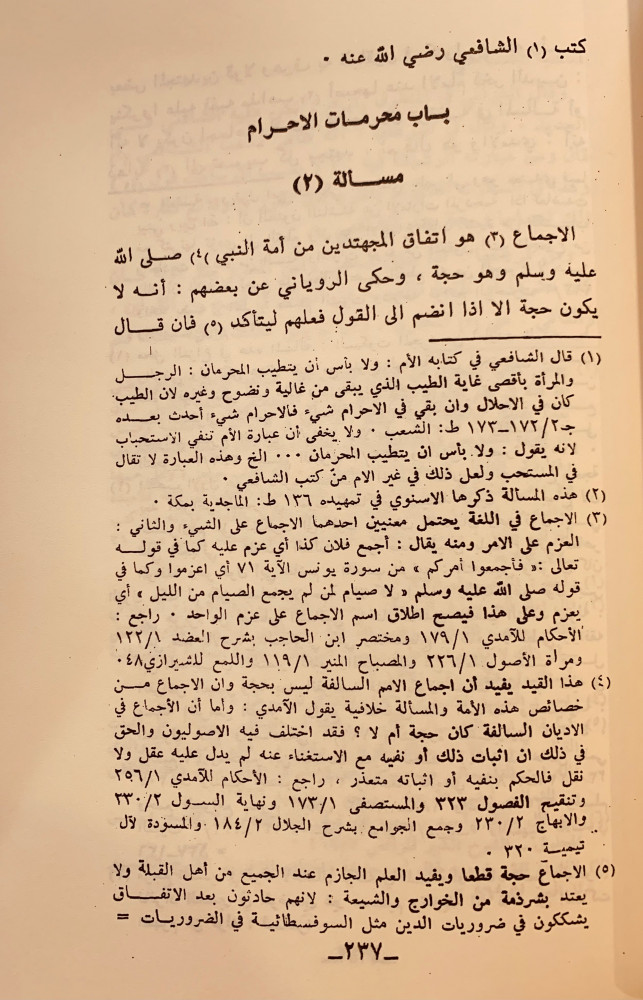 كتب (١) الشافعي رضي الله عنه ٠
بـاب محرمات الاحـرام
مسـالة (٢)
الاجماع (٣) هو اتفاق المجتهدين من أمة النبي (٤) صلى الله
عليه وسلم وهو حجة ، وحكى الروياني عن بعضهم : أنـه لا
يكون حجة الا اذا انضم الى القول فعلهم ليتأكد (٥) فان قـال
(١) قال الشافعي في كتابه الأم : ولا بأس أن يتطيب المحرمان : الرجـل
والمرأة بأقصى غاية الطيب الذي يبقى من غالية ونضوح وغيره لان الطيب
كان في الاحلال وان بقي في الاحرام شيء فالاحرام شيء أحدث بعـده
جـ٢/١٧٢ــ١٧٣ ط: الشعب ٠ ولا يخفى أن عبارة الأم تنفي الاستحباب
لانه يقول : ولا بأس ان يتطيب المحرمان ٠٠٠ الخ وهذه العبارة لا تقال
في المستحب ولعل ذلك في غير الام من كتب الشافعي ٠
(٢) هذه المسالة ذكرها الاسنوي في تمهيده ١٣٦ ط: الماجدية بمكة ٠
(٣) الاجماع في اللغة يحتمل معنيين احدهما الاجماع على الشيء والثاني :
العزم على الامر ومنه يقال : أجمع فلان كذا أي عزم عليه كما في قولـه
تعالى :« فأجمعوا أمركم » من سورة يونس الآية ٧١ أي اعزموا وكما في
قوله صلى الله عليه وسلم « لا صيام لمن لم يجمع الصيام من الليل » أي
يعزم وعلى هذا فيصح اطلاق اسم الاجماع على عزم الواحد ٠ راجع :
الأحكام للآمدي ١/١٧٩ ومختصر ابن الحاجب بشرح العضد ١/١٢٢
ومرآة الأصول ١/٢٢٦ والمصباح المنير ١/١١٩ واللمع للشيرازي٠٤٨
(٤) هذا القيد يفيد أن اجماع الامم السالفة ليس بحجة وان الاجماع مـن
خصائص هذه الأمة والمسألة خلافية يقول الآمدي : واما أن الأجماع في
الاديان السالفة كان حجة أم لا ؟ فقد اختلف فيه الاصوليون والحق
في ذلك ان اثبات ذلك أو نفيه مع الاستغناء عنه لم يدل عليه عقل ولا
نقل فالحكم بنفيه أو اثباته متعذر ، راجع : الأحكام للآمدي ١/٢٥٦
وتنقيح الفصول ٣٢٣ والمستصفى ١/١٧٣ ونهاية السـول ٢/٣٣٠
والابهاج ٢/٢٣٠ وجمع الجوامع بشرح الجلال ٢/١٨٤ والمسودة لآل
تيميـة ٣٢٠ ٠
(٥) الاجماع حجة قطعا ويفيد العلم الجازم عند الجميع من أهل القبلة ولا
يعتد بشرذمة من الخوارج والشيعة : لانهم حادثون بعد الاتفـاق
يشككون في ضروريات الدين مثل السوفسطائية في الضروريات =
ــ٢٣٧ــ